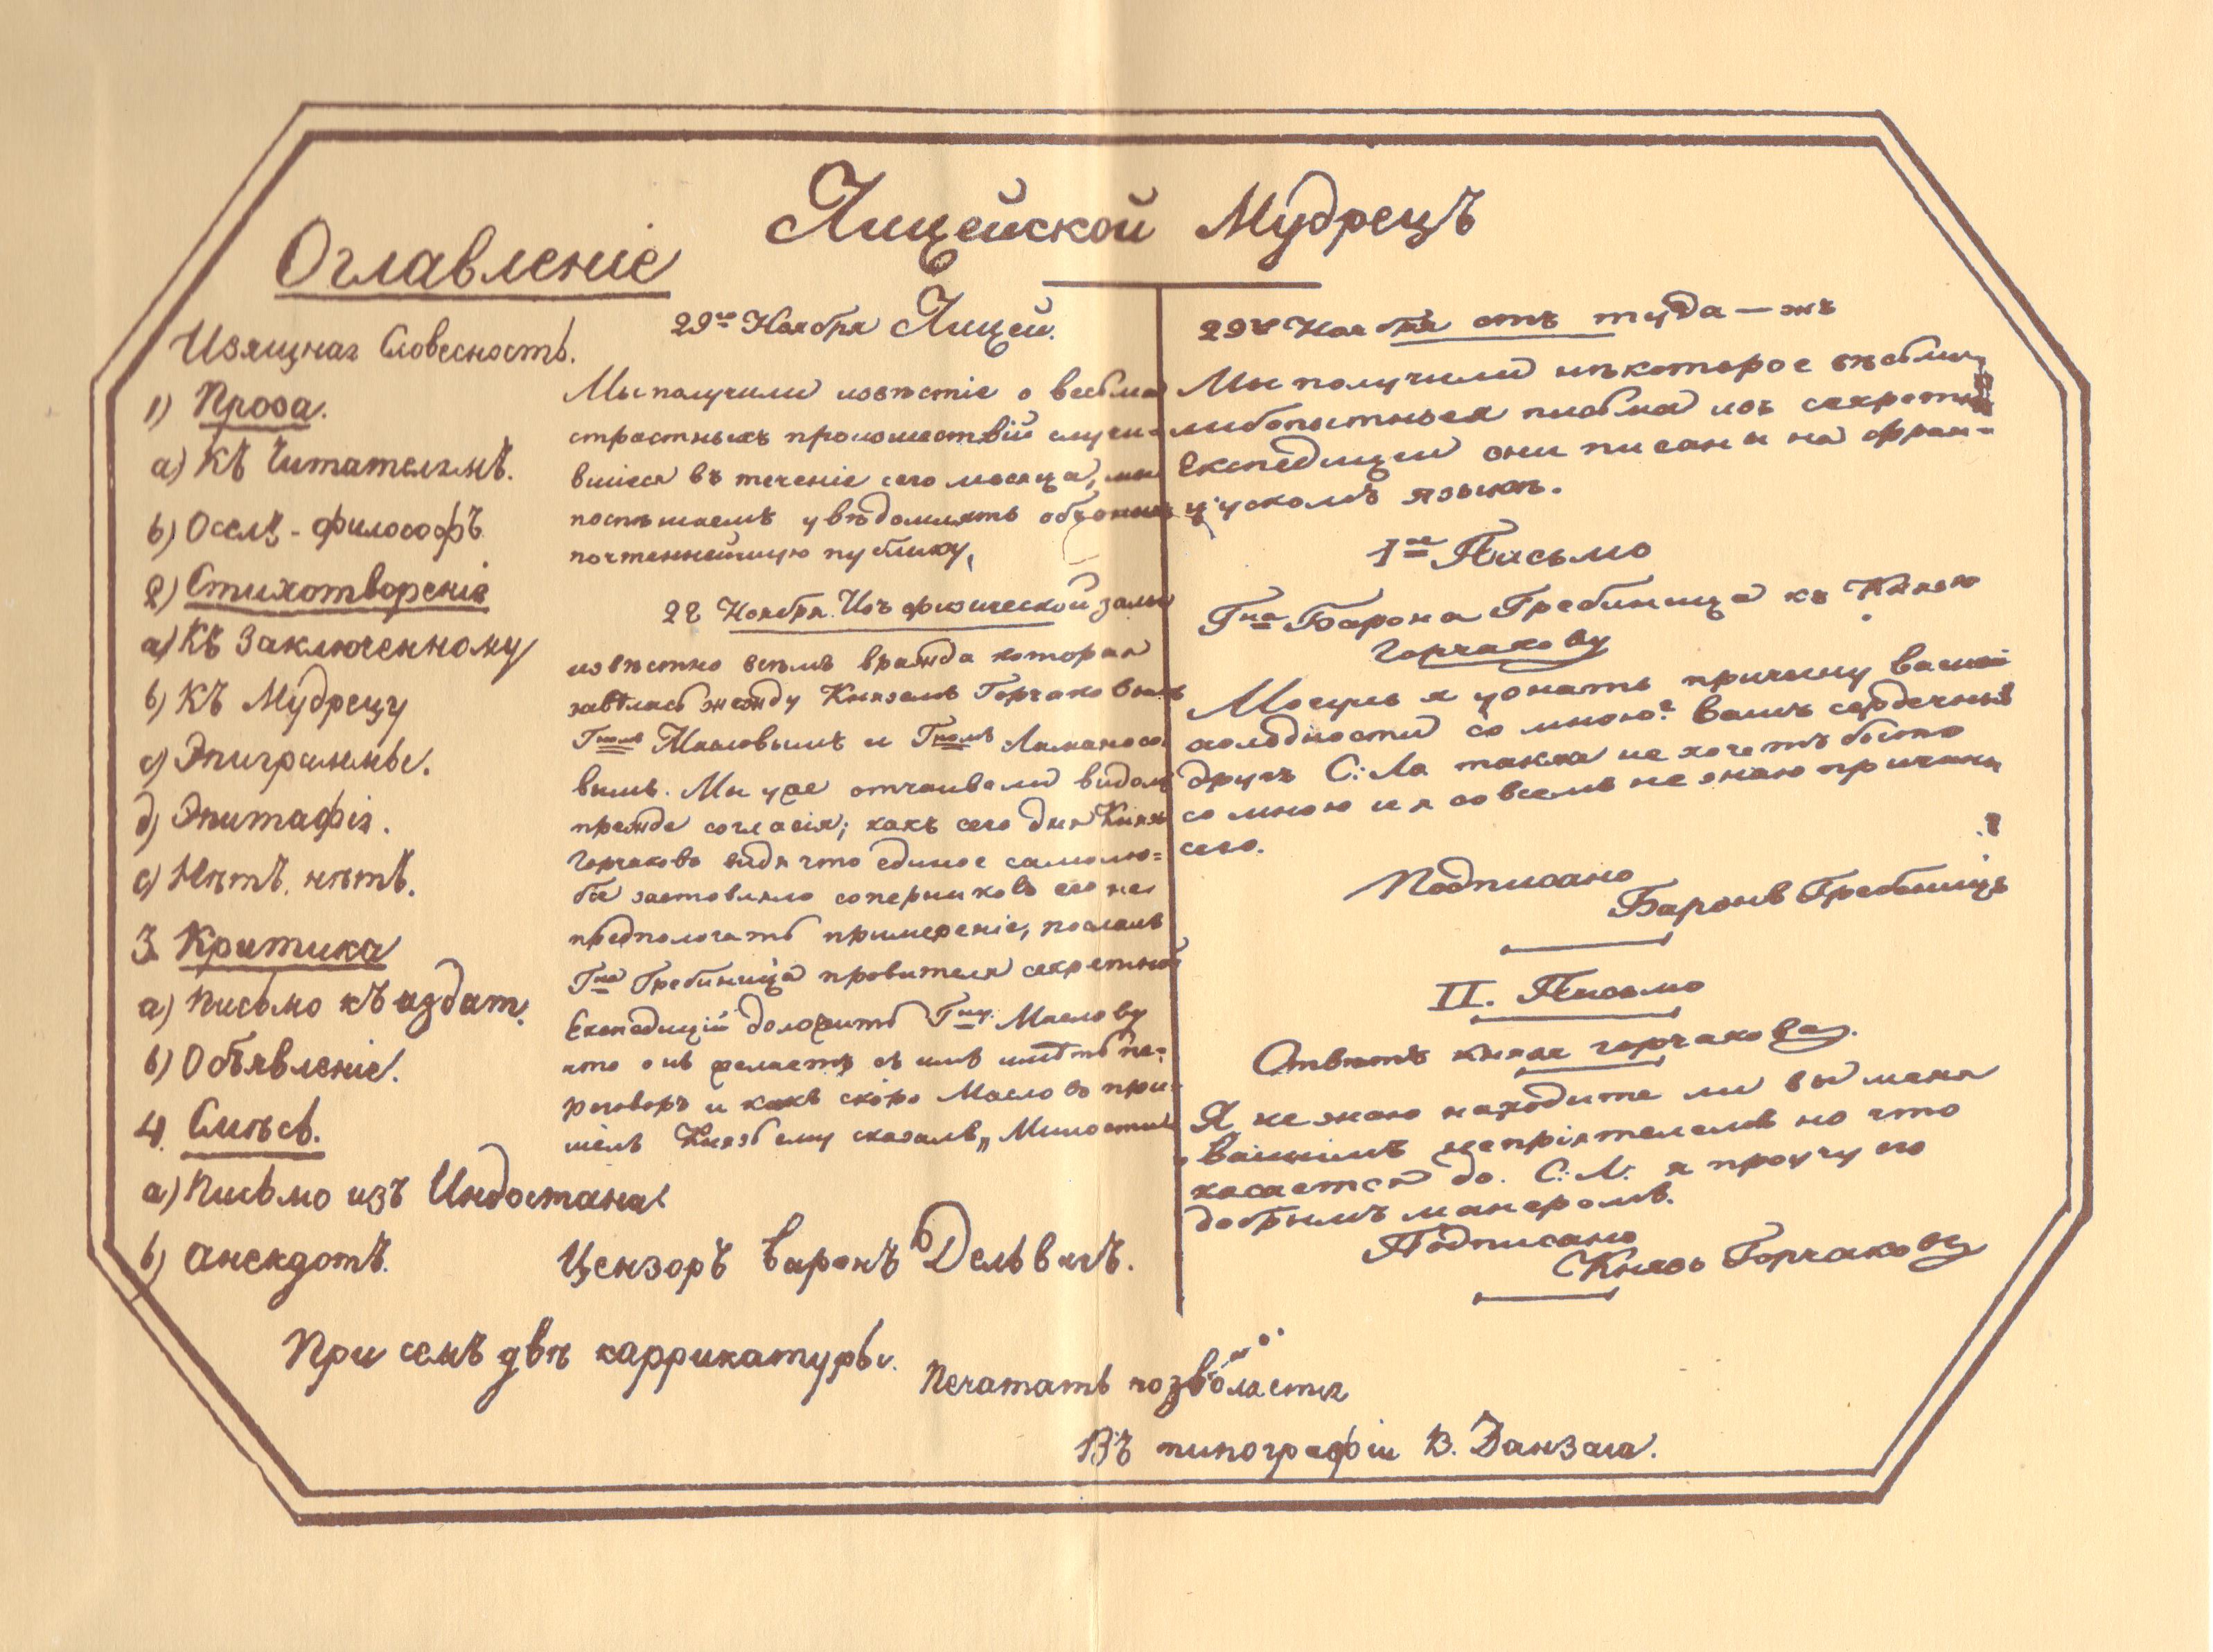 Лицейской Мудрецъ
Оглавленіе
Изящная Словесность.
1) Проза.
а) Къ Читателямъ.
b) Оселъ - философъ
2) Стихотворенія
а) Къ Заключенному
b) Къ Мудрецу
с) Эпиграммы.
д) Эпитафія.
е) Нѣтъ, нѣтъ.
3. Критика
а) Письмо къ издат.
b) Объявленіе.
4. Смѣсь.
а) Письмо изъ Индостана
b) анекдотъ.
29го Ноября Лицей.
Мы получили извѣстіе о весьма
страстныхъ произшествій случи-
вшіеся въ теченіе сего месяца, мы
поспѣшаемъ увѣдомлять
почтеннейшую публику,
28 Ноября. Изъ физической залы
извѣстно всѣмъ вражда которая
завѣлась между Княземъ Горчаковымъ
Гномъ Масловымъ и Гномъ Ламаносо
вымъ. Мы уже отчаивали видать
прежде согласія; какъ сего дня Князь
Горчаковъ видя что единое самолю=
біе заставляло соперниковъ его не
предпологать примереніе, послалъ
Гна Гребиница провителя секретной
Експедицій доложить Гну Маслову
что онъ желаетъ съ имъ имѣть пе=
реговоръ и какъ скоро Масловъ при=
шелъ Князь ему сказалъ „Милостив
Цензоръ Баронъ Дельвигъ.
29го Ноября отъ туда—жъ
Мы получили нѣкоторое вѣсьми
любопытныея письма изъ секретной
Експедиции они писаны на фран=
цускомъ языкѣ.
Iое Письмо
Гна Барона Гребиница къ Князю
Горчакову
Могули я узнать причину вашей
холодности со мною? Вашъ сердечный
другъ С: Ла также не хочетъ быть
со мною и я со всемъ не знаю причины
сего.
Подписано
Баронъ Гребеницъ
II. Письмо
Отвѣтъ князя Горчакова.
Я не знаю находите ли вы меня
вашимъ непріятелемъ но что
касается до. С: Л: я проучу его
добрымъ манеромъ.
Подписано
Князь Горчаковъ
При семъ двѣ каррикатуры.
Печатать позволяется
Въ типографіи В. Данзаса.